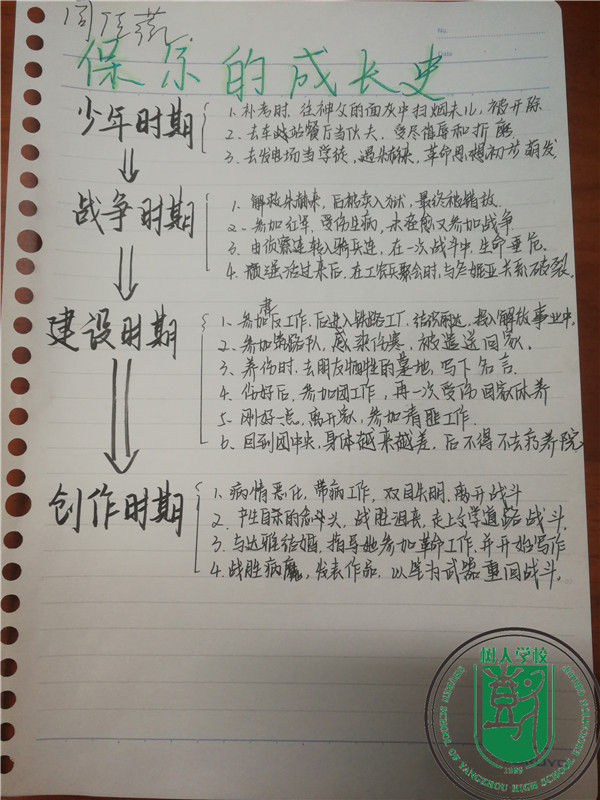 保尔的成长史
少年时期
1、补考时，往神父的面灰中扫烟末儿，被开除
2、去车站餐厅当伙夫，受尽侮辱和折磨
3、去发电场当学徒，遇朱赫来，革命思想初步萌发
战争时期
1、解救朱赫来，后被关入狱，最终被错放.
2、参加红军，受伤且病，未痊愈又参加战争.
3、由侦察连转入骑兵连，在一次战斗中，生命垂危.
4、顽强活过来后，在工农兵聚会时，与冬妮亚关系破裂.
建设时期
1、参加肃反工作，后进入铁路工厂，结识丽达，投入解放事业中.
2、参加筑路队，感染伤寒，被遣送回家.
3、养伤时，去朋友牺牲的墓地，写下名言.
4、伤好后，参加团工作，再一次受伤回家休养
5、刚好一点，离开家，参加清匪工作.
6、回到团中央，身体越来越差，后不得不去疗养院
创作时期
1、病情恶化，带病工作，双目失明，离开战斗
2、产生自杀的念头，战胜沮丧，走上文学道路战斗.
3、与达雅结婚，指导她参加革命工作，并开始写作
4、战胜病魔，发表作品，以笔为武器重回战斗.
树人学校
1889